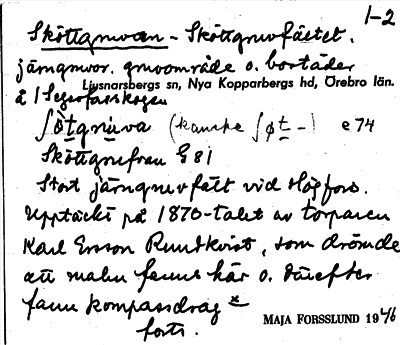 1-2
Sköttgruvan - Sköttgruvfältet.
järngruvor. gruvområde o. bostäder
Ljusnarsbergs sn, Nya Kopparbergs hd, Örebro län.
å 1 Segerforsskogen
ʃø̀tgrùva (kanske ʃøt-) e 74
Sköttgrufvan G 81
Stort järngruvfält vid Högfors.
Upptäckt på 1870-talet av torparen
Karl Ersson Rundkvist, som drömde
att malm fanns här o. därefter
fann kompassdrag x
forts.
MAJA FORSSLUND 19 46